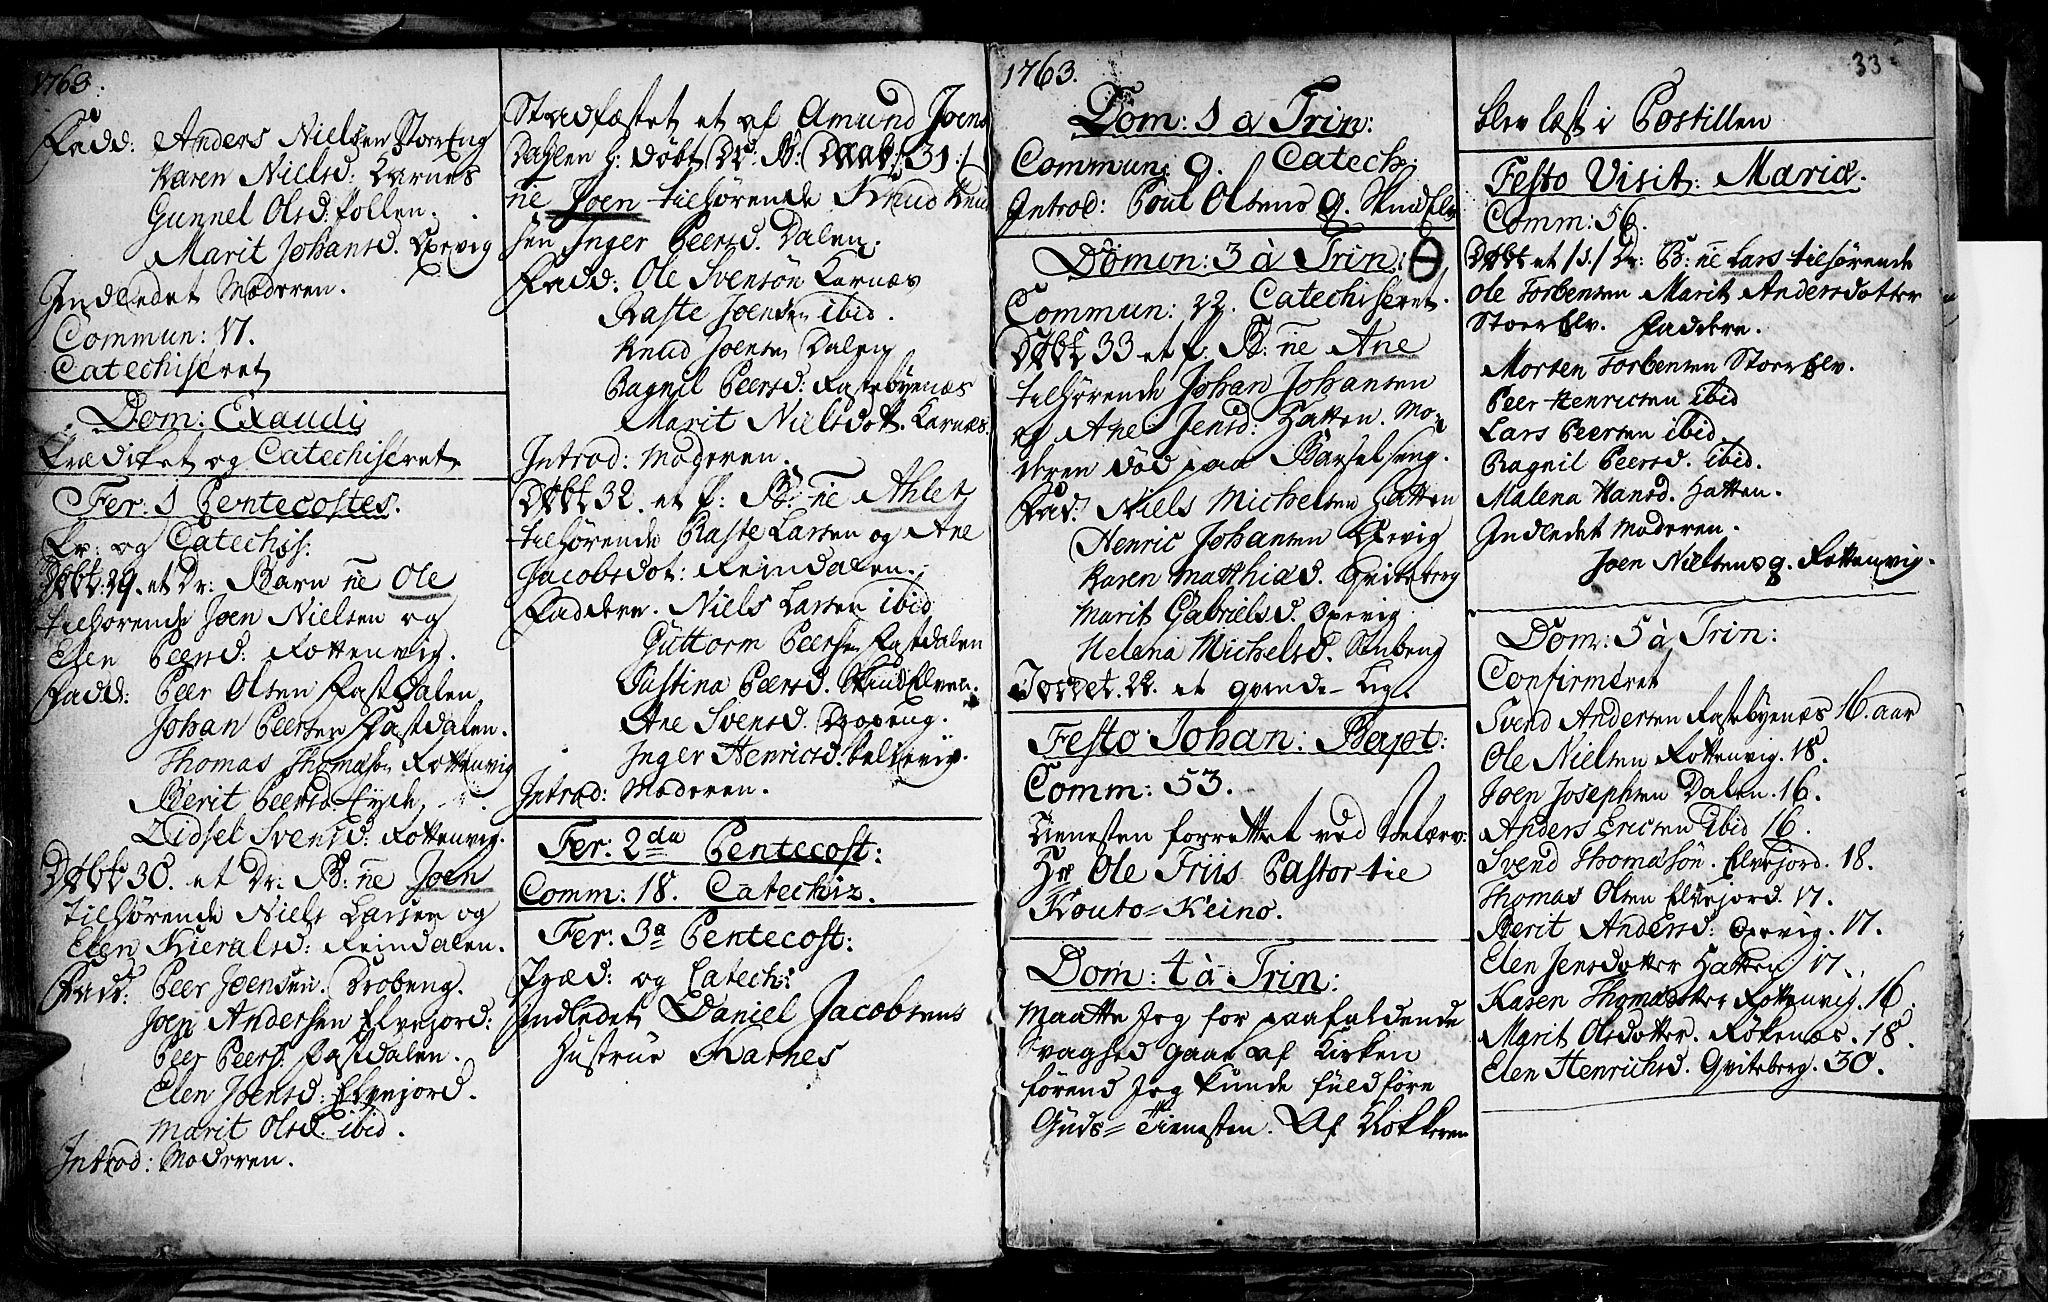 1763.
Fadd: Anders Nielsen StorEng
Karen Nielsd: Karnes
Gunnel Olsd: Pollen.
Marit Johansd. Oxevig
Indledet Moderen.
Commun: 17.
Catechiseret
Dom: Exaudi
Prædiket og Catechiseret.
Fer: 1 Pentecostes.
Pr: og Catechis:
Døbt. 29. et Dr: Barn ne Ole
tilhørende Joen Nielsen og
Elen Peersd: Rottenvig.
Fadd: Peer Olsen Rastdalen
Johan Peersen Rastdalen.
Thomas Thomasøn Rottenvig
Berit Peersd.
Zidsel Svensd: Rottenvig.
Døbt 30. et Dr: B: ne Joen
tilhørende Niels Larsen og
Elen Kieralsd: Reindalen.
Fadd: Peer Joensen. Drobeng.
Joen Andersen Elvejord:
Peer Peers: Rastdalen.
Elen Joensd: Elvejord.
Marit Olsd. ibid.
Introd: Moderen.
Stadfæstet et af Amund Joens
Dahlen h: døbt Dr. B: 31:/
ne Joen tilhørende Knud Knud
sen Inger Peersd. Dalen.
Fadd: Ole Svensøn Karnes
Raste Joensen ibid.
Knud Joensen Dalen
Ragnil Peersd: Rastebyenæs
Marit Nielsdott. Karnæs.
Introd: Moderen.
Døbt 32. et f: B: ne Ahlet
tilhørende Raste Larsen og Ane
Jacobsdot: Reindalen.
Faddere. Niels Larsen ibid
Guttorm Peersen Rastdalen
Justina Peersd. SkindElven.
Ane Svensd. Dropeng.
Inger Henricsd.
Introd: Moderen.
Fer: 2da Pentecost:
Comm: 18. Catechiz.
Fer: 3a Pentecost:
Præd: og Catech:
Indledet Daniel Jacobsens
Hustrue Karnes
1763.
Dom: 1 a Trin:
Commun: 9. Catech:
Introd: Poul Olsens q. SkindElv
Domin: 3 à Trin:
Commun: 22. Catechiseret.
Døbt 33 et f. B: ne Ane
tilhørende Johan Johansen
og Ane Jensd: Hatten. Mo-
deren død paa Barselseng.
Fad: Niels Michelsen Hatten
Henric Johansen Oxevig
Karen Matthiad. Qviteberg
Marit Gabrielsd. Oxevig
Helena Michelsd. Stubeng
Jordet. 22. et qvinde-Lig.
Festo Johan: Bapt:
Comm: 53.
Tienesten forrettet ved Velærv:
Hr Ole Friis Pastor til
Kouto=Keino.
Dom: 4 à Trin:
Maatte Jeg for paafaldende
Svaghed gaae af Kirken
førend Jeg kunde fuldføre
Guds=Tienesten. Af Klokkeren
33
blev læst i Postillen
Festo Visit: Mariæ.
Comm: 56.
Døbt et /s./ Dr: B: ne Lars tilhørende
Ole Torbensen Marit Andersdotter
StoerElv. Faddere.
Morten Torbensen StoerElv.
Peer Henricsen ibid
Lars Peersen ibid.
Ragnil Peersd. ibid.
Malena Hansd. Hatten.
Indledet Moderen.
Joen Nielsens q. Rottenvig.
Dom: 5 à Trin:
Confirmeret
Svend Andersen Rastebyenæs 16. aar
Ole Nielsen Rottenvig. 18.
Joen Josephsen Dalen. 16.
Anders Ericsen ibid 16.
Svend Thomasøn. Elvejord. 18.
Thomas Olsen Elvejord. 17.
Berit Andersd: Oxevig. 17.
Elen Jensdotter Hatten 17.
Karen Thomædotter Rottenvig. 16.
Marit Olsdotter. Røkenæs. 18.
Elen Henrichsd. Qviteberg. 30.